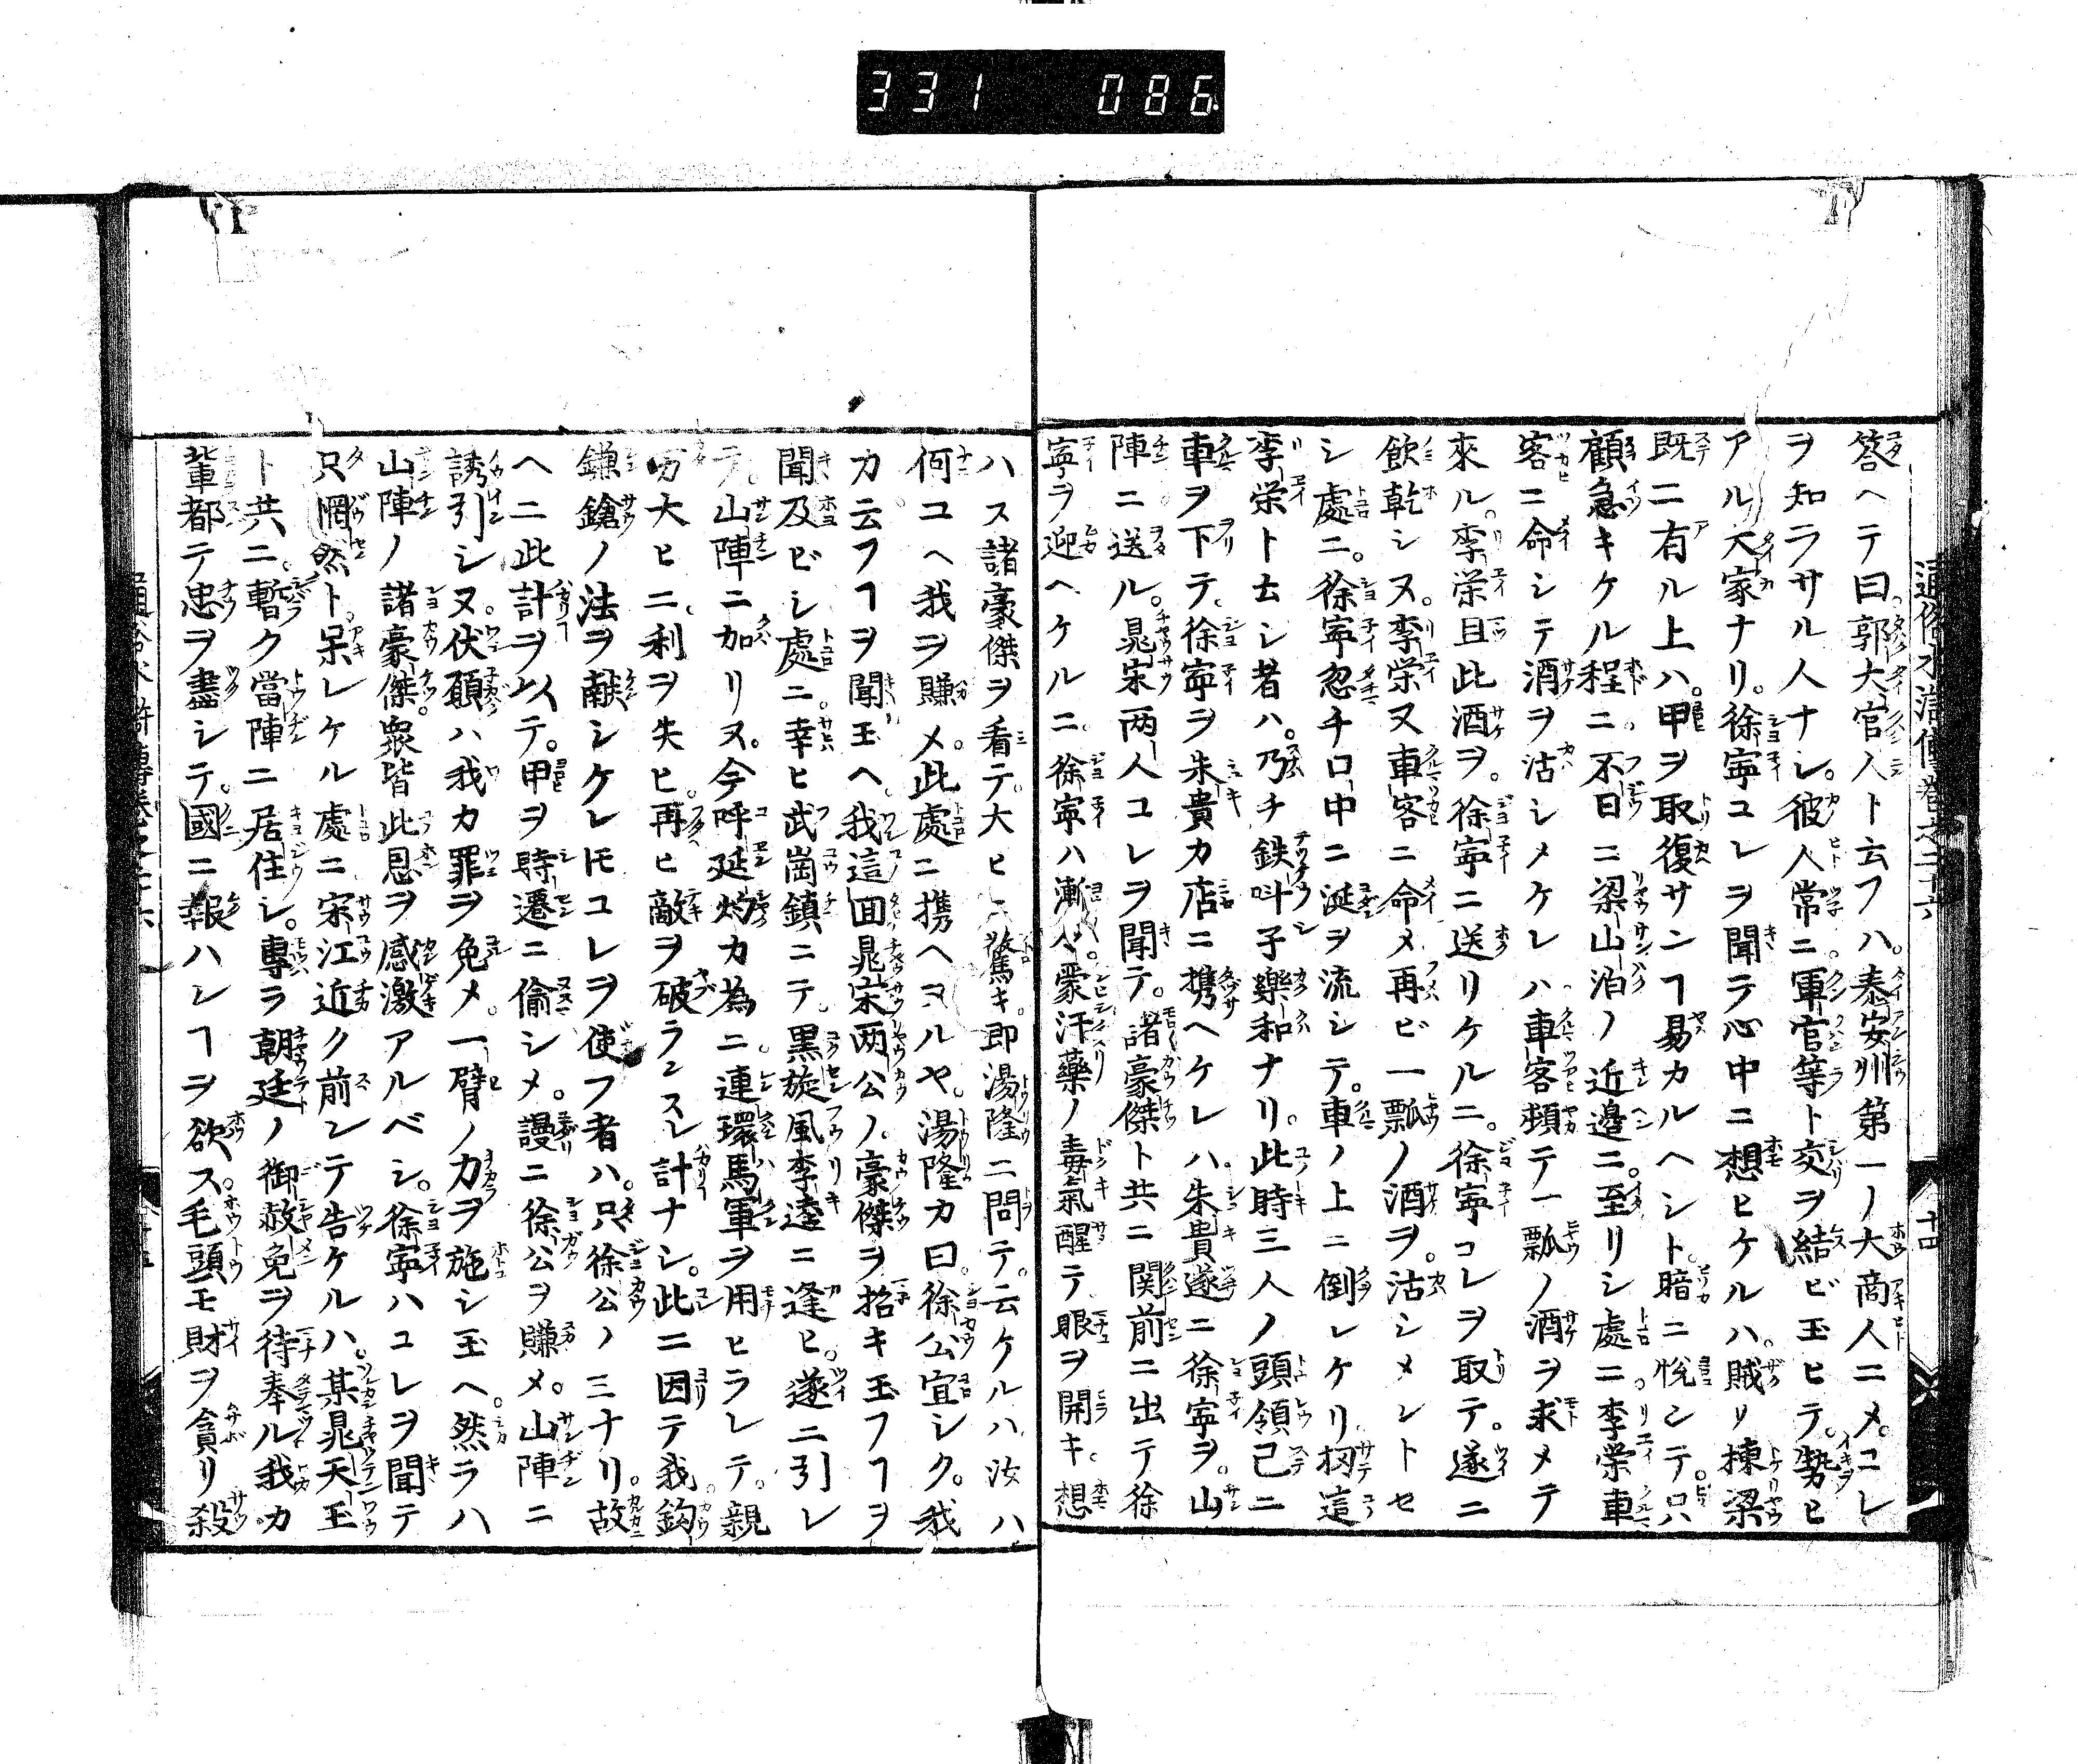 331 086
答ヘテ曰。郭大官人ト云フハ。泰安州第一ノ大商人ニメ。コレ
ヲ知ラサル人ナシ。彼人常ニ。軍官等ト交ヲ結ビ玉ヒテ。勢ヒ
アル大家ナリ。徐寧コレヲ聞テ心中ニ想ヒケルハ。賊リ棟梁
既ニ有ル上ハ。甲ヲ取復サンヿ易カルヘシト。暗ニ悅ンテ。只
顧急キケル程ニ。不日ニ梁山泊ノ近邉ニ。至リシ處ニ。李栄車
客ニ命シテ酒ヲ沽シメケレハ。車客頼テ一瓢ノ酒ヲ求メテ
來ル。李栄且此酒ヲ。徐寧ニ送リケルニ。徐寧コレヲ取テ。遂ニ
飲乾シヌ。李栄又車客ニ命メ再ビ一瓢ノ酒ヲ。沽シメントセ
シ處ニ。徐寧忽チ口中ニ涎ヲ流シテ。車ノ上ニ倒レケリ。扨這
李栄ト云シ者ハ。乃チ鉄叫子樂和ナリ。此時三人ノ頭領已ニ
車ヲ下テ。徐寧ヲ朱貴カ店ニ携ヘケレハ。朱貴遂ニ徐寧ヲ。山
陣ニ送ル。晁宋两人コレヲ聞テ。諸豪傑ト共ニ関前ニ出テ徐
寧ヲ迎ヘケルニ。徐寧ハ漸々。蒙汗藥ノ毒氣醒テ眼ヲ開キ。想
ハス諸豪傑ヲ看テ。大ヒニ驚キ。即湯隆ニ問テ。云ケルハ汝ハ
何ユヘ我ヲ賺メ。此處ニ携ヘヌルヤ。湯隆カ曰。徐公宜シク。我
カ云フヿヲ聞玉ヘ。我這囬晁宋两公ノ。豪傑ヲ招キ玉フヿヲ
聞及ビシ處ニ。幸ヒ武崗鎮ニテ。黒旋風李逵ニ逢ヒ。遂ニ引レ
テ。山陣ニ加リヌ。今呼延灼カ為ニ。連環馬軍ヲ用ヒラレテ。親
方大ヒニ。利ヲ失ヒ。再ヒ敵ヲ破ランスレ計ナシ。此ニ因テ我。鈎
鎌鎗ノ法ヲ献シケレモコレヲ使フ者ハ。只徐公ノ三ナリ。故
ヘニ此計ヲ以テ。甲ヲ時遷ニ偷シメ。謾ニ徐公ヲ賺メ。山陣ニ
誘引シヌ。伏願ハ我カ罪ヲ免メ。一臂ノ力ヲ施シ玉ヘ。然ラハ
山陣ノ諸豪傑。衆皆此恩ヲ感激アルベシ。徐寧ハコレヲ聞テ
只惘然ト。呆レケル處ニ宋江近ク前ンテ告ケルハ。某晁天王
ト共ニ。暫ク當陣ニ居住シ。專ラ朝廷ノ御赦免ヲ待奉ル我カ
輩都テ忠ヲ盡シテ。國ニ報ハンヿヲ欲ス。毛頭モ財ヲ貪リ殺